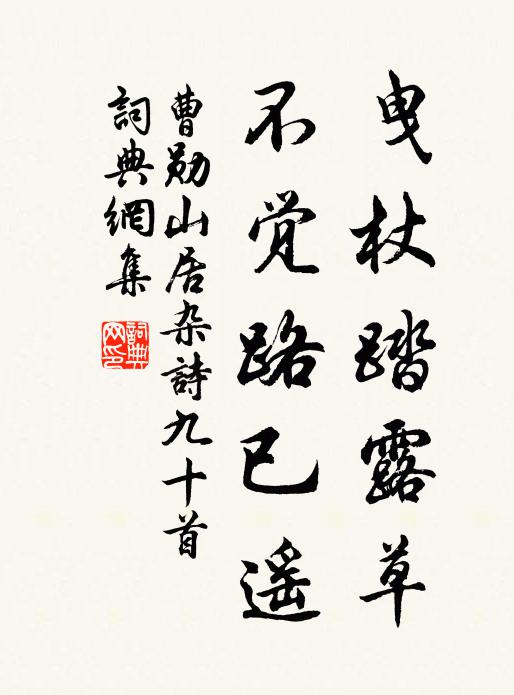 曳杖踏露草
不觉路已遥
曹勋山居杂詩九十首
詞典網集
詞典網印